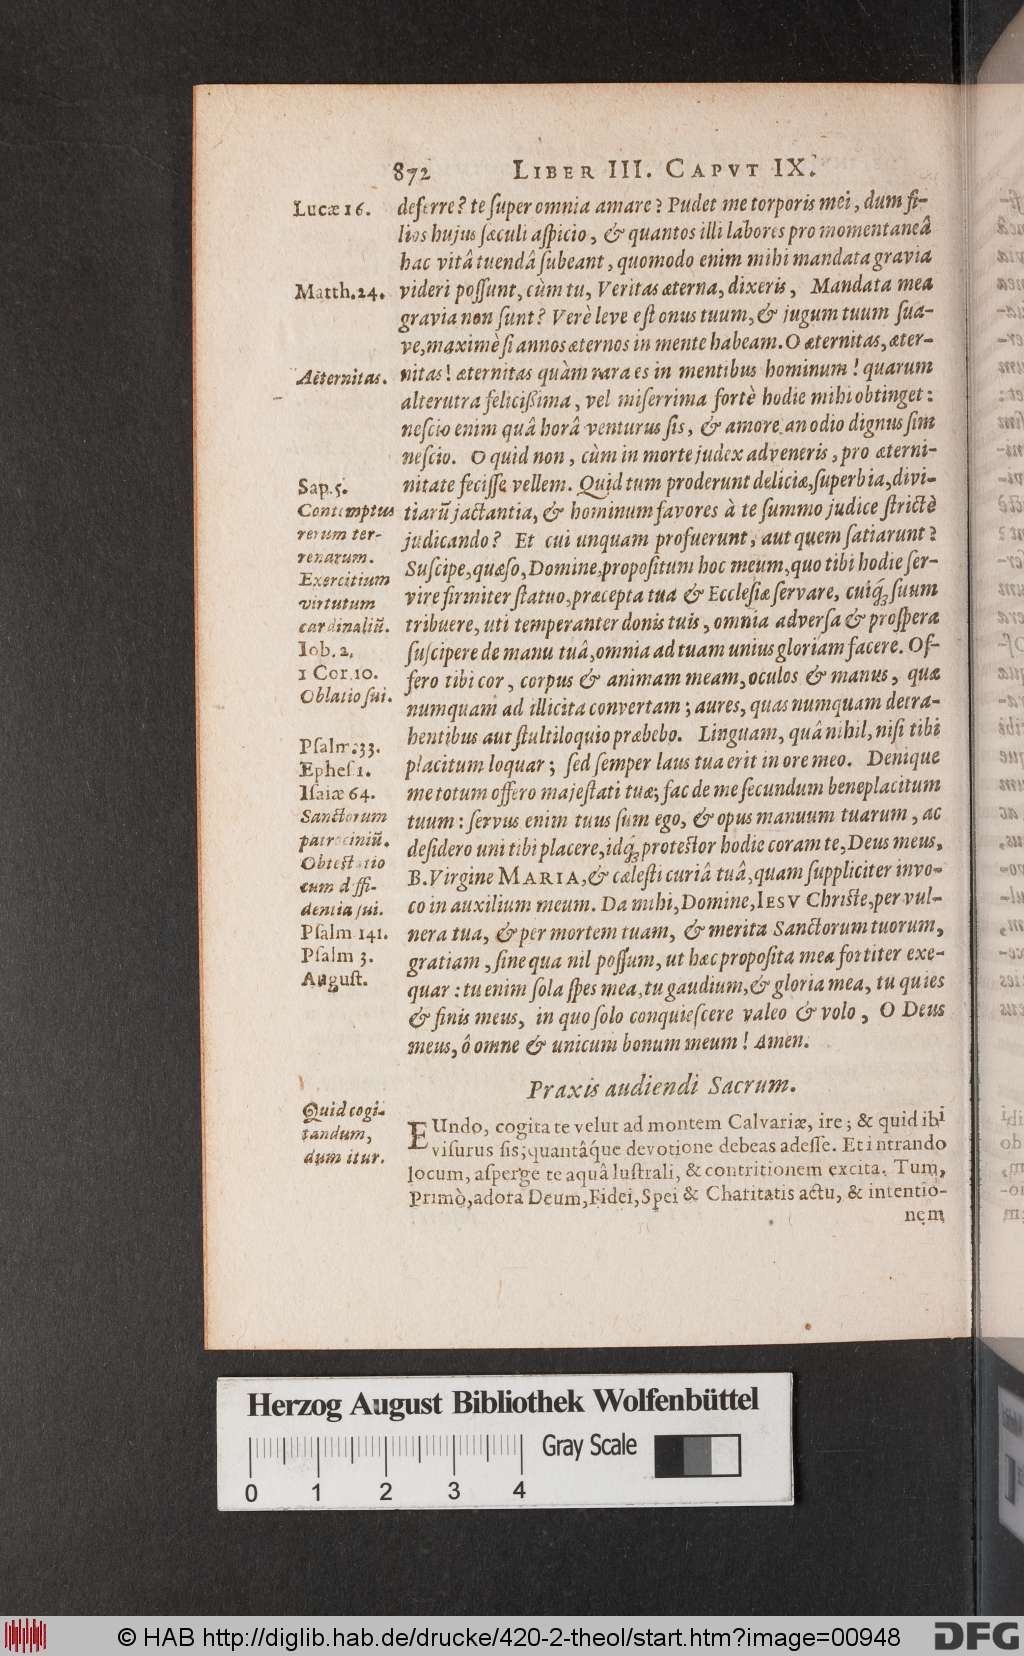 872 LIBER III. CAPVT IX.
Lucæ 16.
deserre? te super omnia amare? Pudet me torporis mei, dum fi-
lios hujus sæculi aspicio, & quantos illi labores pro momentaneâ
hac vitâ tuendâ subeant, quomodo enim mihi mandata gravia
Matth. 24.
videri possunt, cùm tu, Veritas æterna, dixeris, Mandata mea
gravia non sunt? Verè leve est onus tuum, & jugum tuum sua-
ve, maximè si annos æternos in mente habeam. O æternitas, æter-
Aeternitas.
nitas! æternitas quàm rara es in mentibus hominum! quarum
alterutra felicissima, vel miserrima fortè hodie mihi obtinget:
nescio enim quâ horâ venturus sis, & amore an odio dignus sim
nescio. O quid non, cùm in morte judex adveneris, pro æterni-
Sap. 5.
nitate fecisse vellem. Quid tum proderunt deliciæ, superbia, divi-
Contemptus
rerum ter-
renarum.
tiarũ jactantia, & hominum favores à te summo judice strictè
judicando? Et cui unquam profuerunt, aut quem satiarunt?
Suscipe, quæso, Domine, propositum hoc meum, quo tibi hodie ser-
Exercitium
virtutum
cardinaliũ.
vire firmiter statuo, præcepta tua & Ecclesiæ servare, cuiq́; suum
tribuere, uti temperanter donis tuis, omnia adversa & prospera
Iob. 2.
1 Cor. 10.
Oblatio sui.
suscipere de manu tuâ, omnia ad tuam unius gloriam facere. Of-
fero tibi cor, corpus & animam meam, oculos & manus, quæ
numquam ad illicita convertam; aures, quas numquam detra-
Psalm. 33.
hentibus aut stultiloquio præbebo. Linguam, quâ nihil, nisi tibi
Ephes 1.
placitum loquar; sed semper laus tua erit in ore meo. Denique
Isaiæ 64.
me totum offero majestati tuæ; fac de me secundum beneplacitum
Sanctorum
patrociniũ.
tuum: servus enim tuus sum ego, & opus manuum tuarum, ac
desidero uni tibi placere, idq́; protestor hodie coram te, Deus meus,
Obtestatio
cum diffi-
dentia sui.
B. Virgine MARIA, & cælesti curiâ tuâ, quam suppliciter invo-
co in auxilium meum. Da mihi, Domine, IESV Christe, per vul-
Psalm 141.
nera tua, & per mortem tuam, & merita Sanctorum tuorum,
Psalm 3.
gratiam, sine qua nil possum, ut hæc proposita mea fortiter exe-
August.
quar: tu enim sola spes mea, tu gaudium, & gloria mea, tu quies
& finis meus, in quo solo conquiescere valeo & volo, O Deus
meus, ô omne & unicum bonum meum! Amen.
Praxis audiendi Sacrum.
Quid cogi-
tandum,
dum itur.
EUndo, cogita te velut ad montem Calvariæ, ire; & quid ibi
visurus sis; quantâq́ue devotione debeas adesse. Et intrando
locum, asperge te aquâ lustrali, & contritionem excita. Tum,
Primò, adora Deum, Fidei, Spei & Charitatis actu, & intentio-
nem
Herzog August Bibliothek Wolfenbüttel
Gray Scale
0 1 2 3 4
© HAB http://diglib.hab.de/drucke/420-2-theol/start.htm?image=00948
DFG